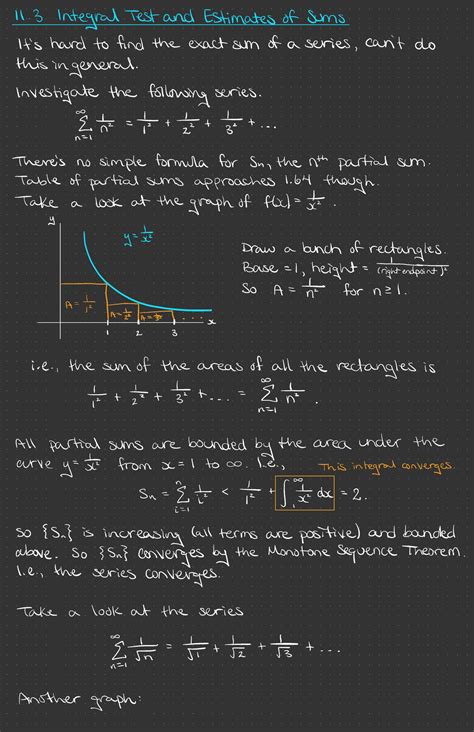 11.3 Integral Test and Estimates of Sums
It's hard to find the exact sum of a series, can't do
this in general.
Investigate the following series.
∞
Σ 1/n² = 1/1² + 1/2² + 1/3² + ...
n=1
There's no simple formula for Sn, the nth partial sum.
Table of partial sums approaches 1.64 though.
Take a look at the graph of f(x) = 1/x².
y
y = 1/x²
A = 1/1²
A = 1/2²
A = 1/3²
...
x
1 2 3
Draw a bunch of rectangles.
Base = 1, height = 1/(right endpoint)²
So A = 1/n² for n ≥ 1.
i.e., the sum of the areas of all the rectangles is
1/1² + 1/2² + 1/3² + ... = Σ 1/n².
∞
n=1
All partial sums are bounded by the area under the
curve y = 1/x² from x = 1 to ∞. I.e.,
This integral converges
Sn = Σ 1/i² < 1/1² + ∫ 1/x² dx = 2.
n
i=1
∞
1
So {Sn} is increasing (all terms are positive) and bounded
above. So {Sn} converges by the Monotone Sequence Theorem.
I.e., the series converges.
Take a look at the series
∞
Σ 1/√n = 1/√1 + 1/√2 + 1/√3 + ...
n=1
Another graph: